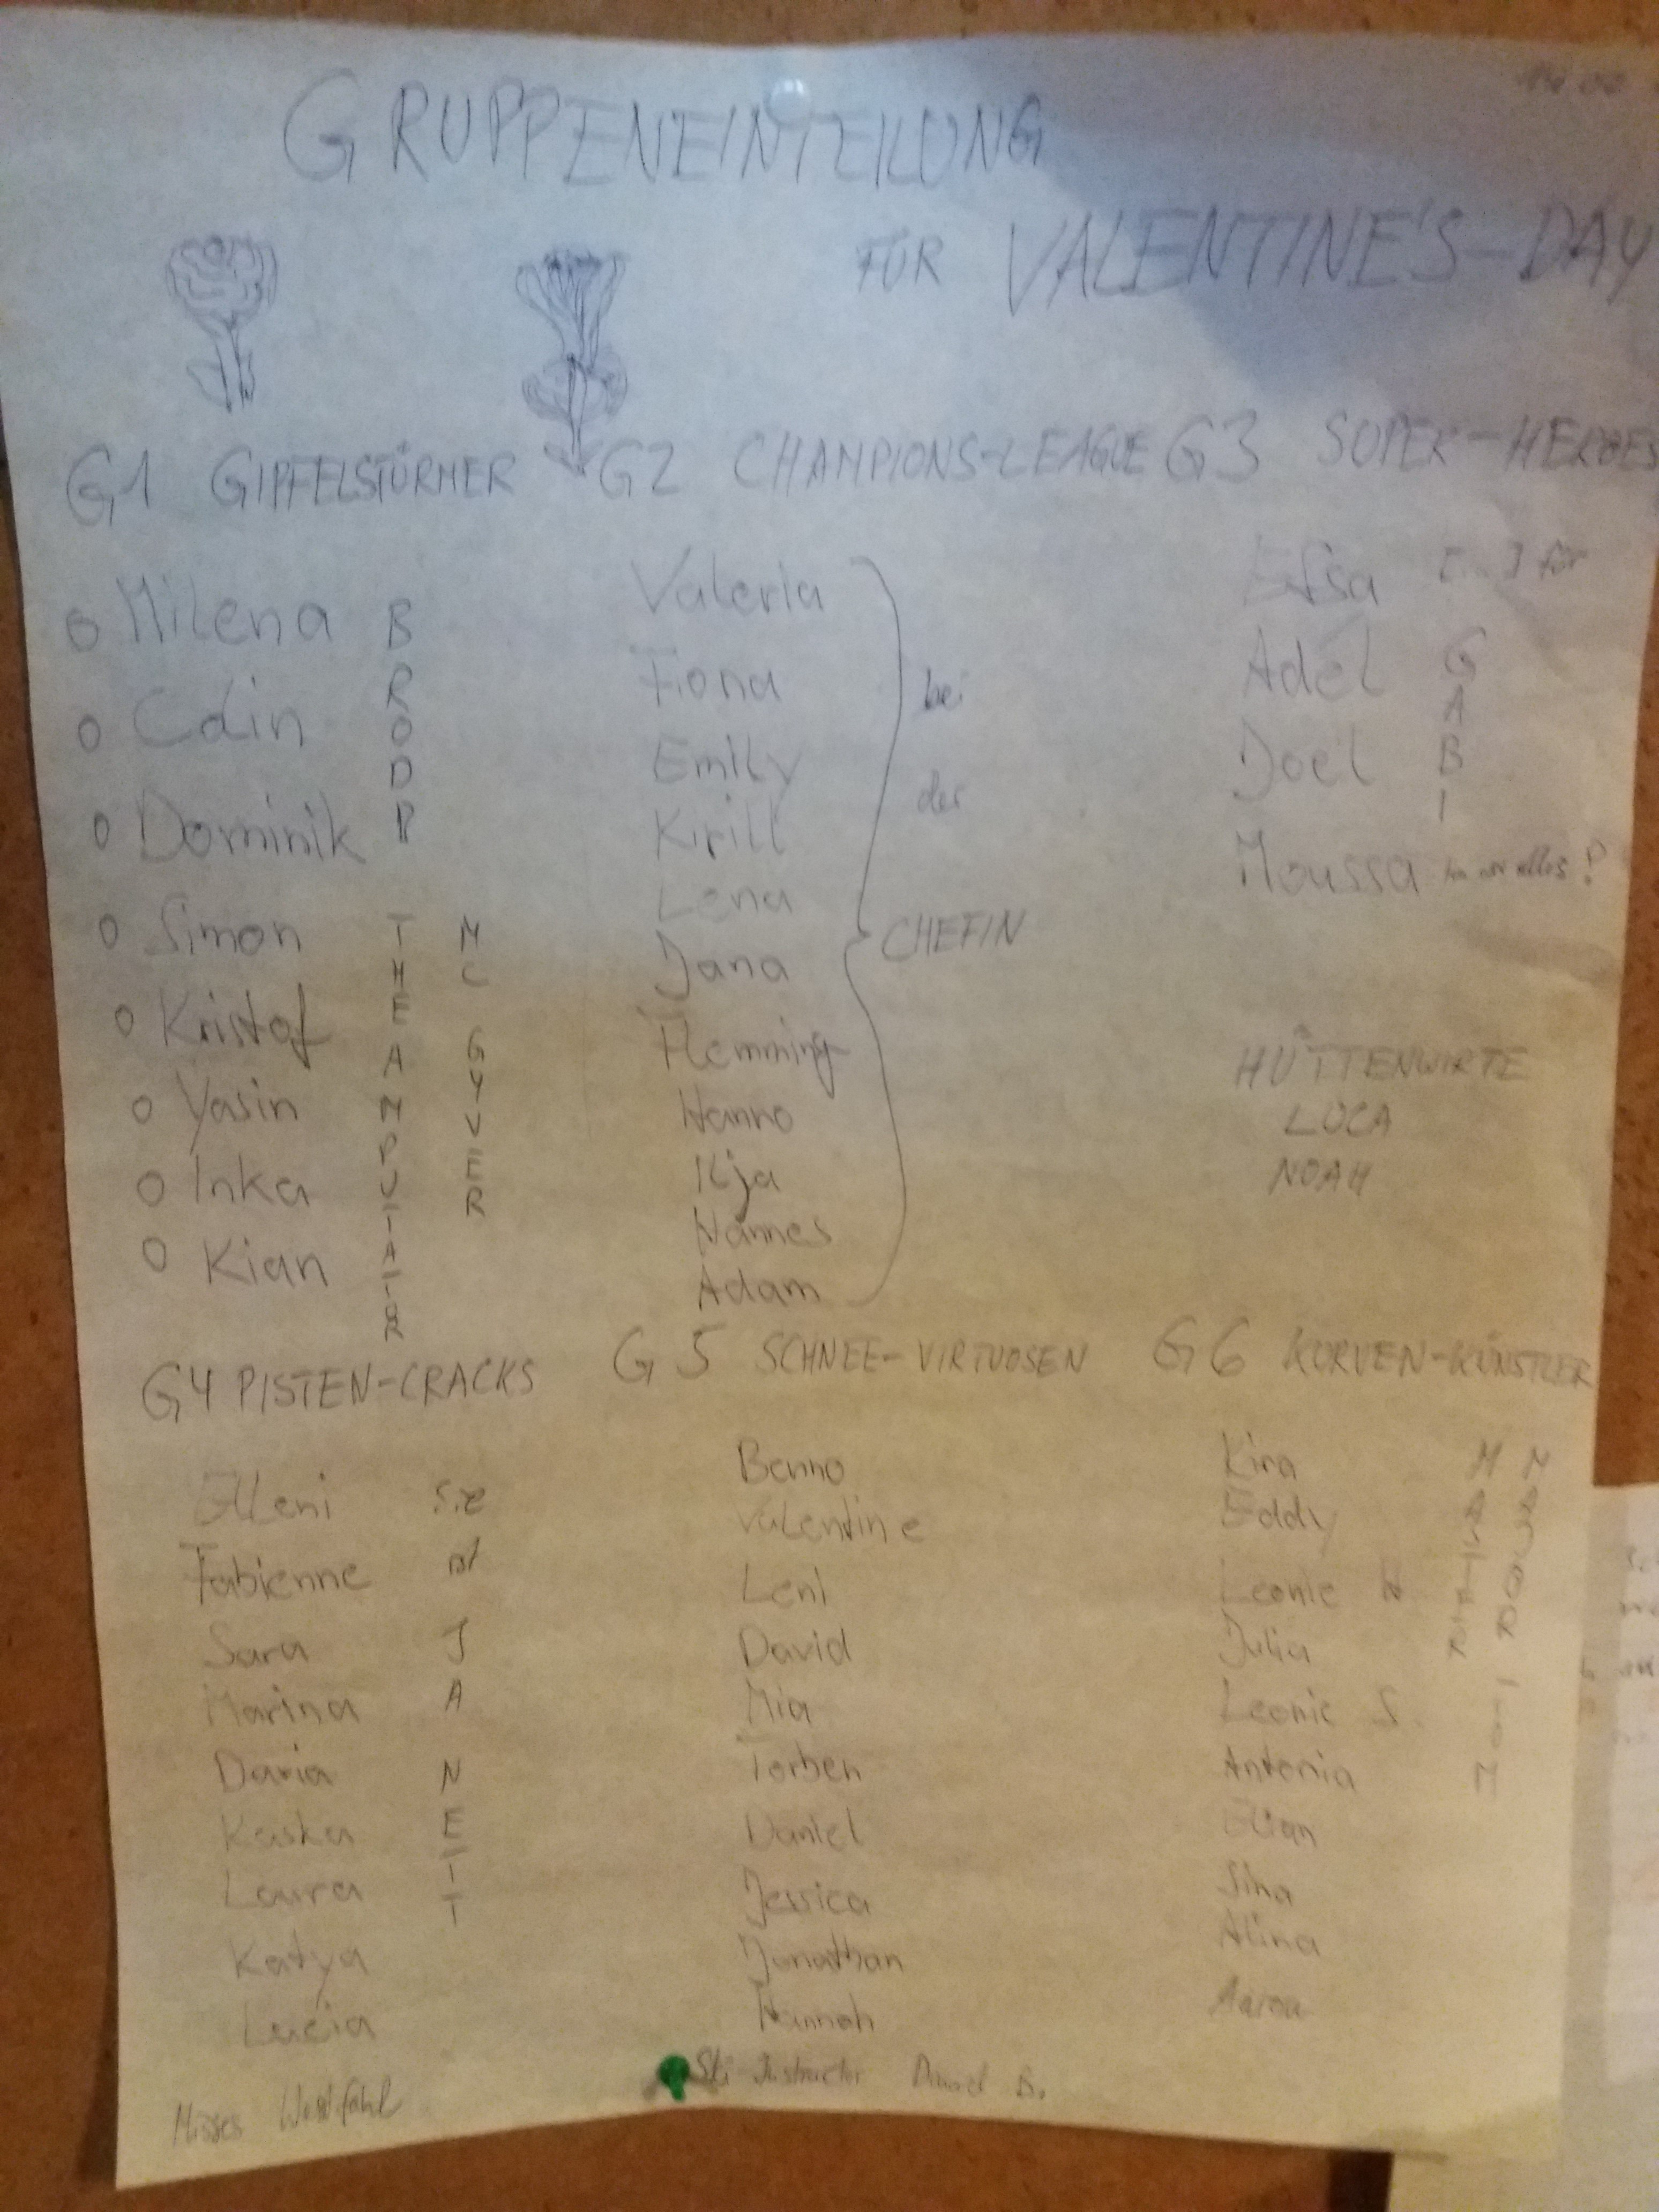 GRUPPENEINTEILUNG
FÜR VALENTINE'S-DAY
G1 GIPFELSTÜRMER
Milena
Edin
Dominik
Simon
Kristof
Yasin
Inka
Kian
BRODP
THEAMPUTATOR
MC GYVER
G2 CHAMPIONS-LEAGUE
Valeria
Fiona
Emily
Kirill
Lena
Jana
Flemming
Hanno
Ilja
Hannes
Adam
bei
der
CHEFIN
G3 SUPER-HEROES
Efsa [...] für
Adel
Joel
Moussa
GABI
alles?
HÜTTENWIRTE
LUCA
NOAH
G4 PISTEN-CRACKS
Elleni
Fabienne
Sara
Marina
Daria
Kaska
Laura
Katya
Lucia
Sie
ist
JANETT
G5 SCHNEE-VIRTUOSEN
Benno
Valentine
Leni
David
Mia
Torben
Daniel
Jessica
Jonathan
Hannah
G6 KURVEN-KÜNSTLER
Kira
Eddy
Leonie W
Julia
Leonie S.
Antonia
Elian
Sina
Alina
Aaron
MASTER
MAJOR
TOM
Misses Westfahl
Ski-Instructor David B.